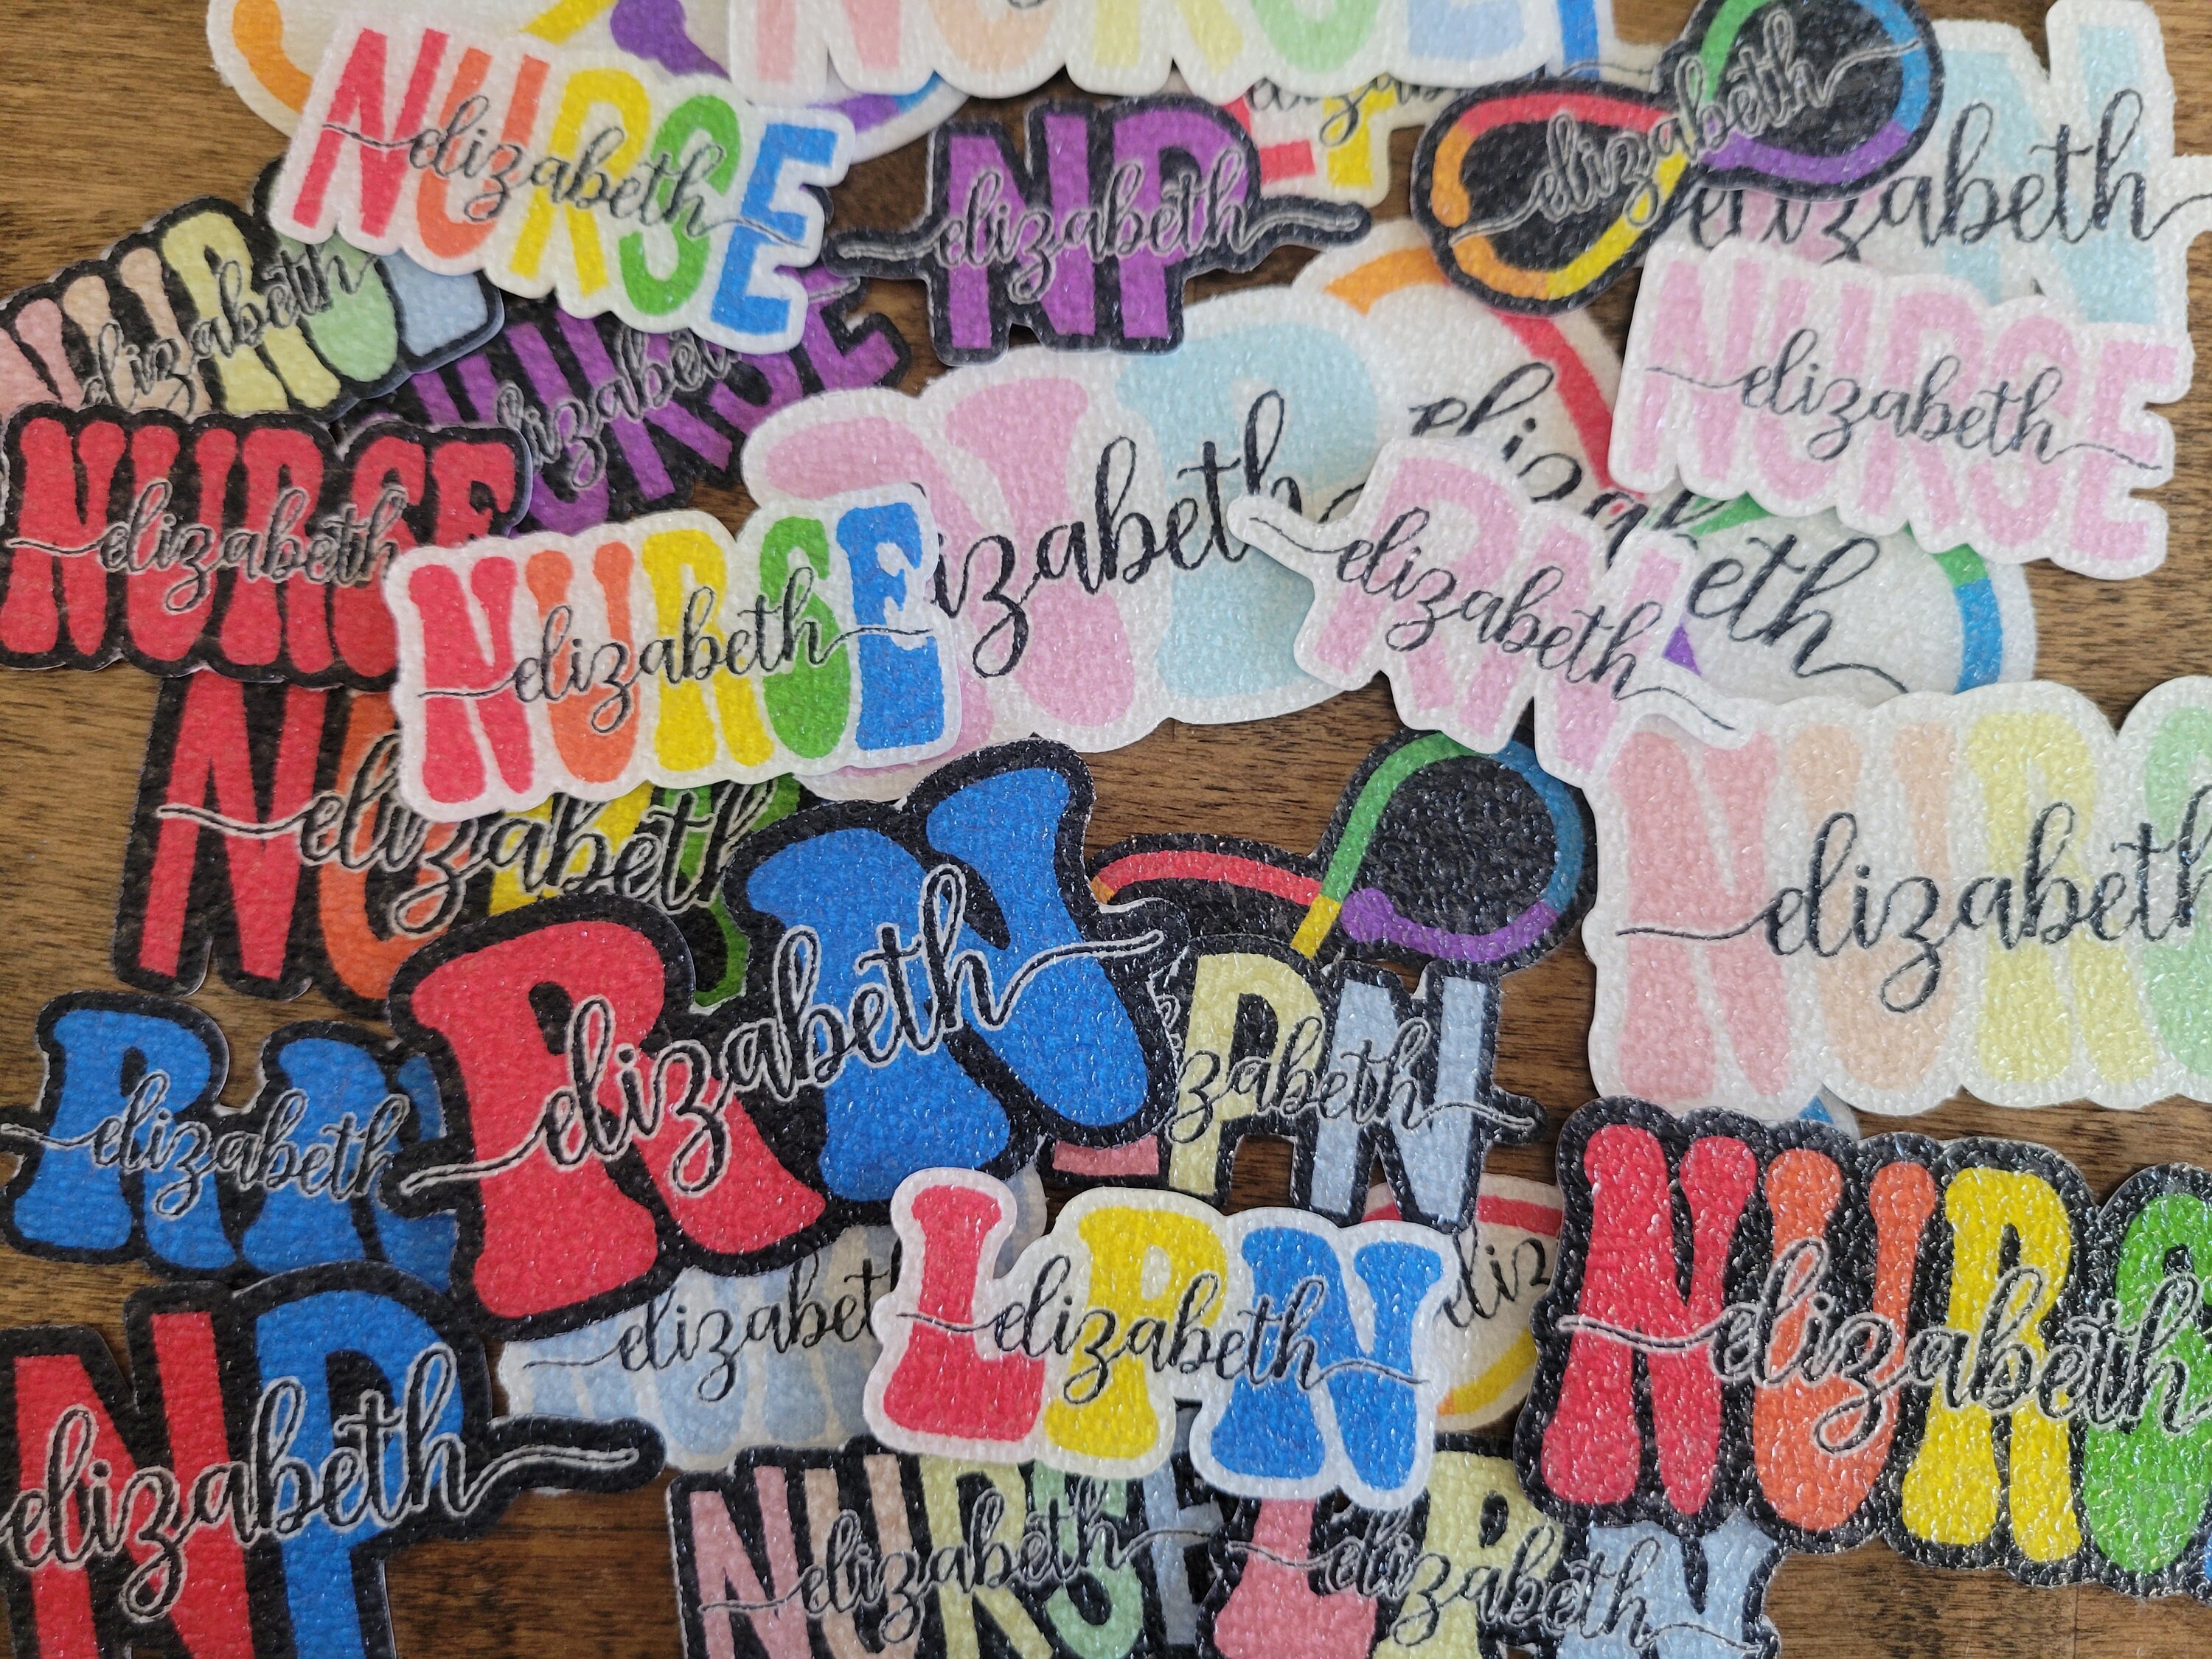 NURSE
NURSE
elizabeth
NP
elizabeth
elizabeth
elizabeth
NURSE
elizabeth
NURSE
elizabeth
NURSE
elizabeth
NURSE
elizabeth
NURSE
elizabeth
RN
elizabeth
elizabeth
NURS
elizabeth
RN
elizabeth
RN
elizabeth
PN
zabeth
LPN
elizabeth
NURS
elizabeth
elizabeth
NP
elizabeth
NURSE
elizabeth
LPN
elizabeth